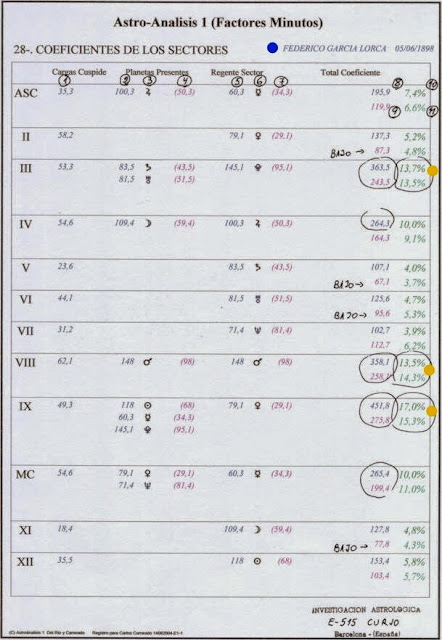 Astro-Analisis 1 (Factores Minutos)
28-. COEFICIENTES DE LOS SECTORES FEDERICO GARCIA LORCA 05/06/1898
Cargas Cuspide Planetas Presentes Regente Sector Total Coeficiente
① ② ③ ④ ⑤ ⑥ ⑦ ⑧ ⑩
ASC 35,3 100,3 ♃ (50,3) 60,3 ☿ (34,3) 195,9 7,4%
119,9 ⑨ 6,6% ⑪
II 58,2 79,1 ♀ (29,1) 137,3 5,2%
BAJO → 87,3 4,8%
III 53,3 83,5 ♄ (43,5) 145,1 ♇ (95,1) 363,5 13,7%
81,5 ♅ (51,5) 243,5 13,5%
IV 54,6 109,4 ☽ (59,4) 100,3 ♃ (50,3) 264,3 10,0%
164,3 9,1%
V 23,6 83,5 ♄ (43,5) 107,1 4,0%
BAJO → 67,1 3,7%
VI 44,1 81,5 ♅ (51,5) 125,6 4,7%
BAJO → 95,6 5,3%
VII 31,2 71,4 ♆ (81,4) 102,7 3,9%
112,7 6,2%
VIII 62,1 148 ♂ (98) 148 ♂ (98) 358,1 13,5%
258,1 14,3%
IX 49,3 118 ☉ (68) 79,1 ♀ (29,1) 451,8 17,0%
60,3 ☿ (34,3) 275,8 15,3%
145,1 ♇ (95,1)
MC 54,6 79,1 ♀ (29,1) 60,3 ☿ (34,3) 265,4 10,0%
71,4 ♆ (81,4) 199,4 11,0%
XI 18,4 109,4 ☽ (59,4) 127,8 4,8%
BAJO → 77,8 4,3%
XII 35,5 118 ☉ (68) 153,4 5,8%
103,4 5,7%
INVESTIGACION ASTROLOGICA
E-515 CURSO
Barcelona - (España)
(C) AstroAnálisis 1 Del Rio y Carreado Registro para Carlos Carreado